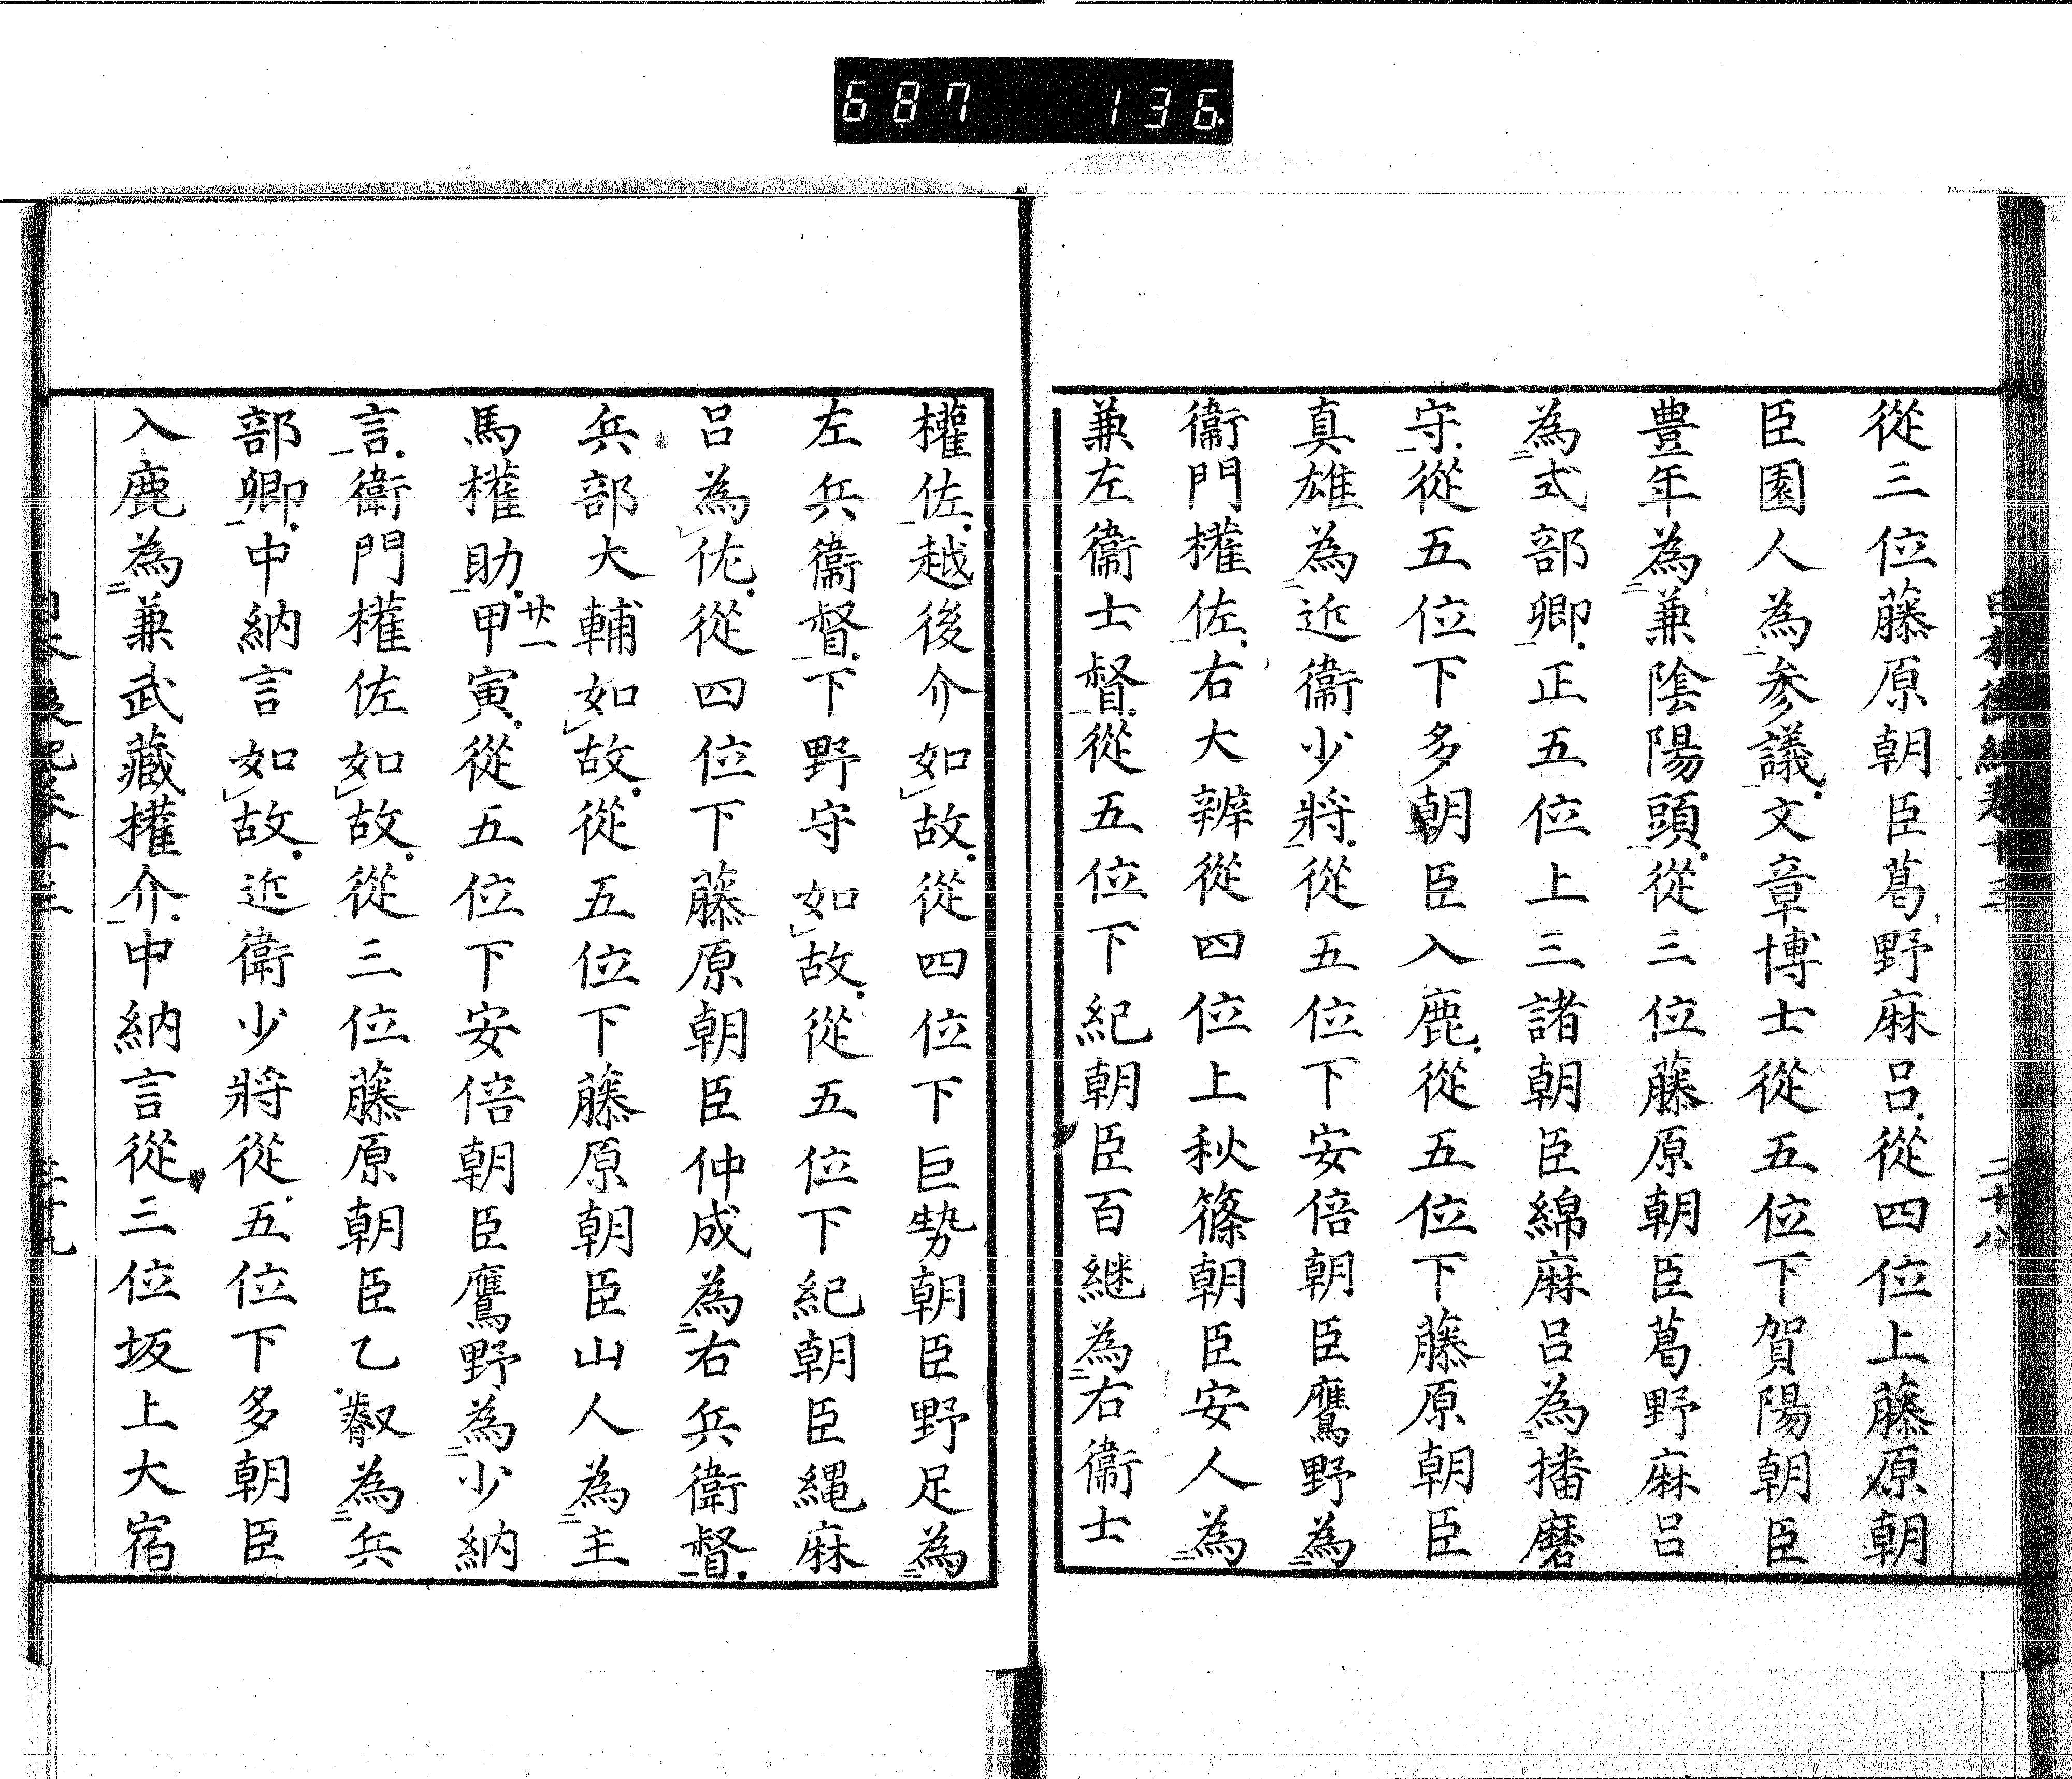 687 136
從三位藤原朝臣葛野麻呂從四位上藤原朝
臣園人為參議文章博士從五位下賀陽朝臣
豊年為兼陰陽頭從三位藤原朝臣葛野麻呂
為式部卿正五位上三諸朝臣綿麻呂為播磨
守從五位下多朝臣入鹿從五位下藤原朝臣
真雄為近衞少將從五位下安倍朝臣鷹野為
衞門權佐右大辨從四位上秋篠朝臣安人為
兼左衞士督從五位下紀朝臣百継為右衞士
權佐越後介如故從四位下巨勢朝臣野足為
左兵衞督下野守如故從五位下紀朝臣縄麻
呂為佐從四位下藤原朝臣仲成為右兵衛督
兵部大輔如故從五位下藤原朝臣山人為主
馬權助甲寅廿一從五位下安倍朝臣鷹野為少納
言衛門權佐如故從三位藤原朝臣乙叡為兵
部卿中納言如故近衛少將從五位下多朝臣
入鹿為兼武藏權介中納言從三位坂上大宿
二十八